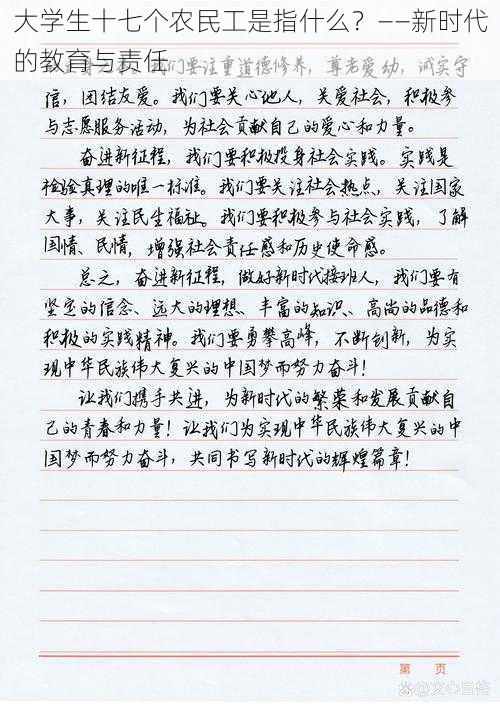 大学生十七个农民工是指什么？——新时代
的教育与责任
们要注重道德修养，尊老爱幼，诚实守
信，团结友爱。我们要关心他人，关爱社会，积极参
与志愿服务活动，为社会贡献自己的爱心和力量。
奋进新征程，我们要积极投身社会实践。实践是
检验真理的唯一标准。我们要关注社会热点，关注国家
大事，关注民生福祉。我们要积极参与社会实践，了解
国情、民情，增强社会责任感和历史使命感。
总之，奋进新征程，做好新时代接班人，我们要有
坚定的信念、远大的理想、丰富的知识、高尚的品德和
积极的实践精神。我们要勇攀高峰，不断创新，为实
现中华民族伟大复兴的中国梦而努力奋斗！
让我们携手共进，为新时代的繁荣和发展贡献自
己的青春和力量！让我们为实现中华民族伟大复兴的中
国梦而努力奋斗，共同书写新时代的辉煌篇章！
第 页